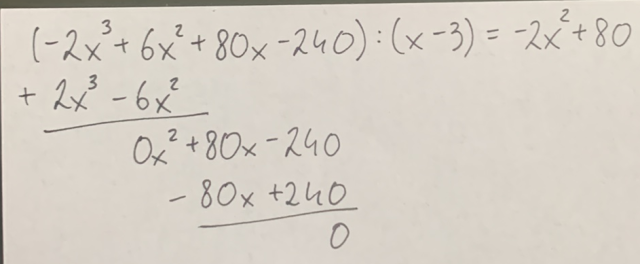 (-2x³ + 6x² + 80x - 240) : (x - 3) = -2x² + 80
+ 2x³ - 6x²
0x² + 80x - 240
- 80x + 240
0